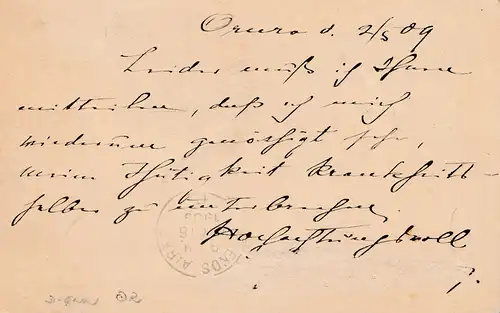 Oruro d. 2/5 09
Leider muß ich Ihnen
mitteilen, daß ich mich
wiederum genöthigt sehe,
meine Thätigkeit krankheits-
halber zu unterbrechen.
Hochachtungsvoll
ENOS AIRE